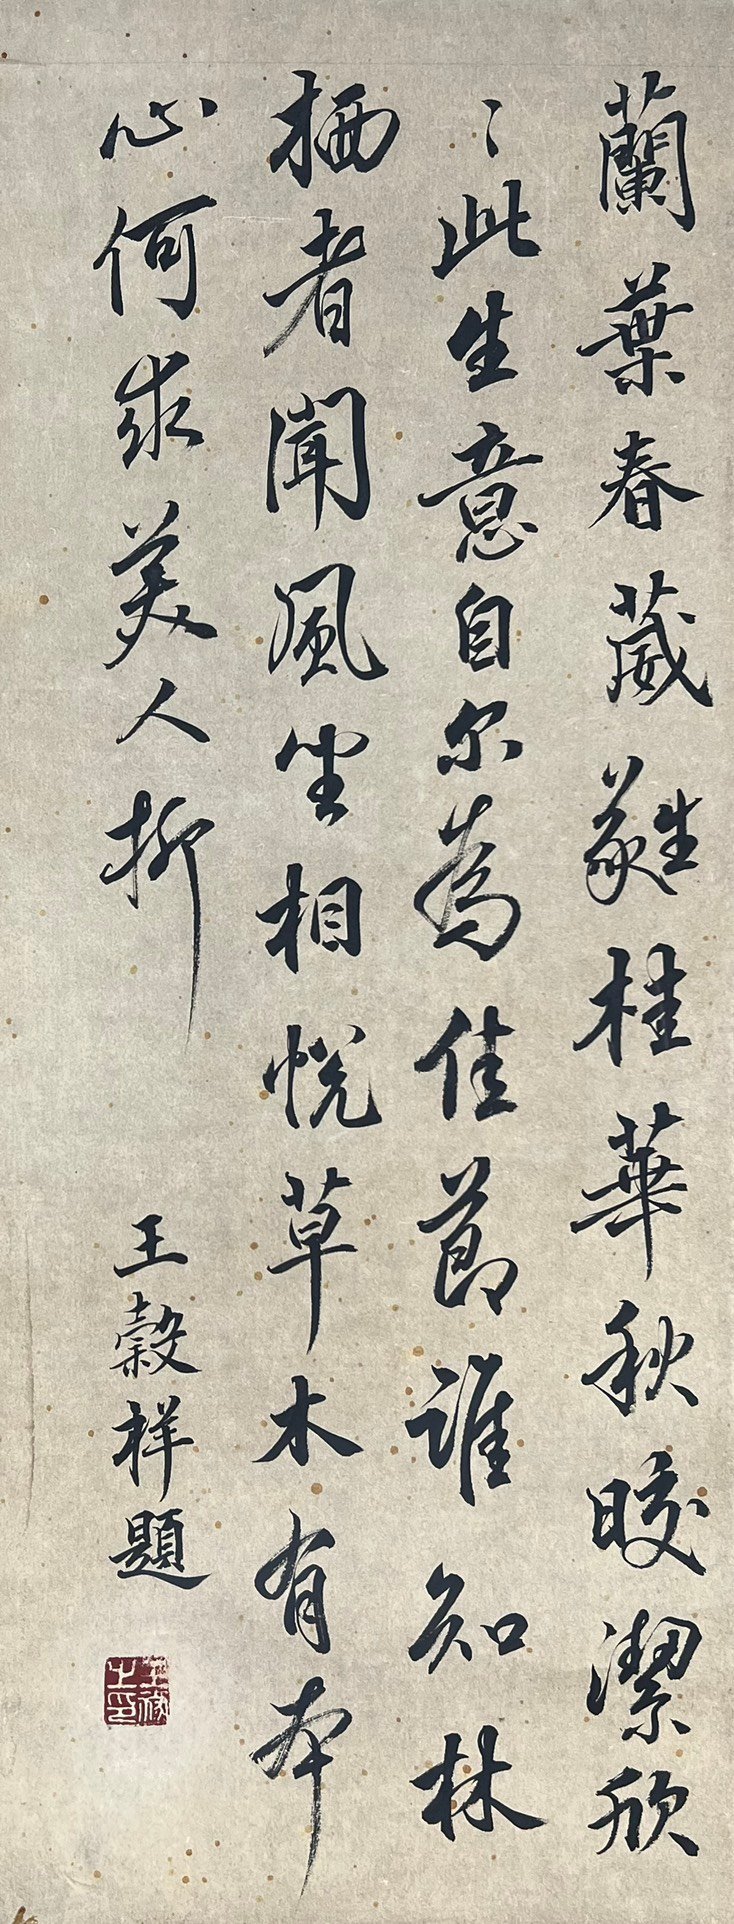 蘭葉春葳蕤桂華秋皎潔欣
〻此生意自尔為佳節誰知林
栖者聞風坐相悅草木有本
心何求美人折
王穀祥題